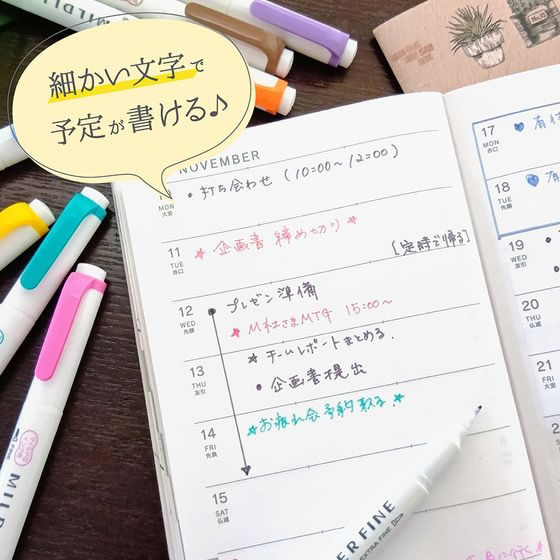 細かい文字で
予定が書ける♪
NOVEMBER
MON
大安
・打ち合わせ (10:00～12:00)
11
TUE
赤口
★ 企画書 締め切り ★
[定時で帰る]
12
WED
先勝
プレゼン準備
★M社さまMTG 15:00～
★チームレポートまとめる.
13
THU
友引
● 企画書提出
14
FRI
先負
★お疲れ会予約取る.★
15
SAT
仏滅
17
MON
赤口
18
TUE
先勝
19
WED
友引
20
THU
21
FRI
仏滅
22
MILD
ER FINE
EXTRA FINE